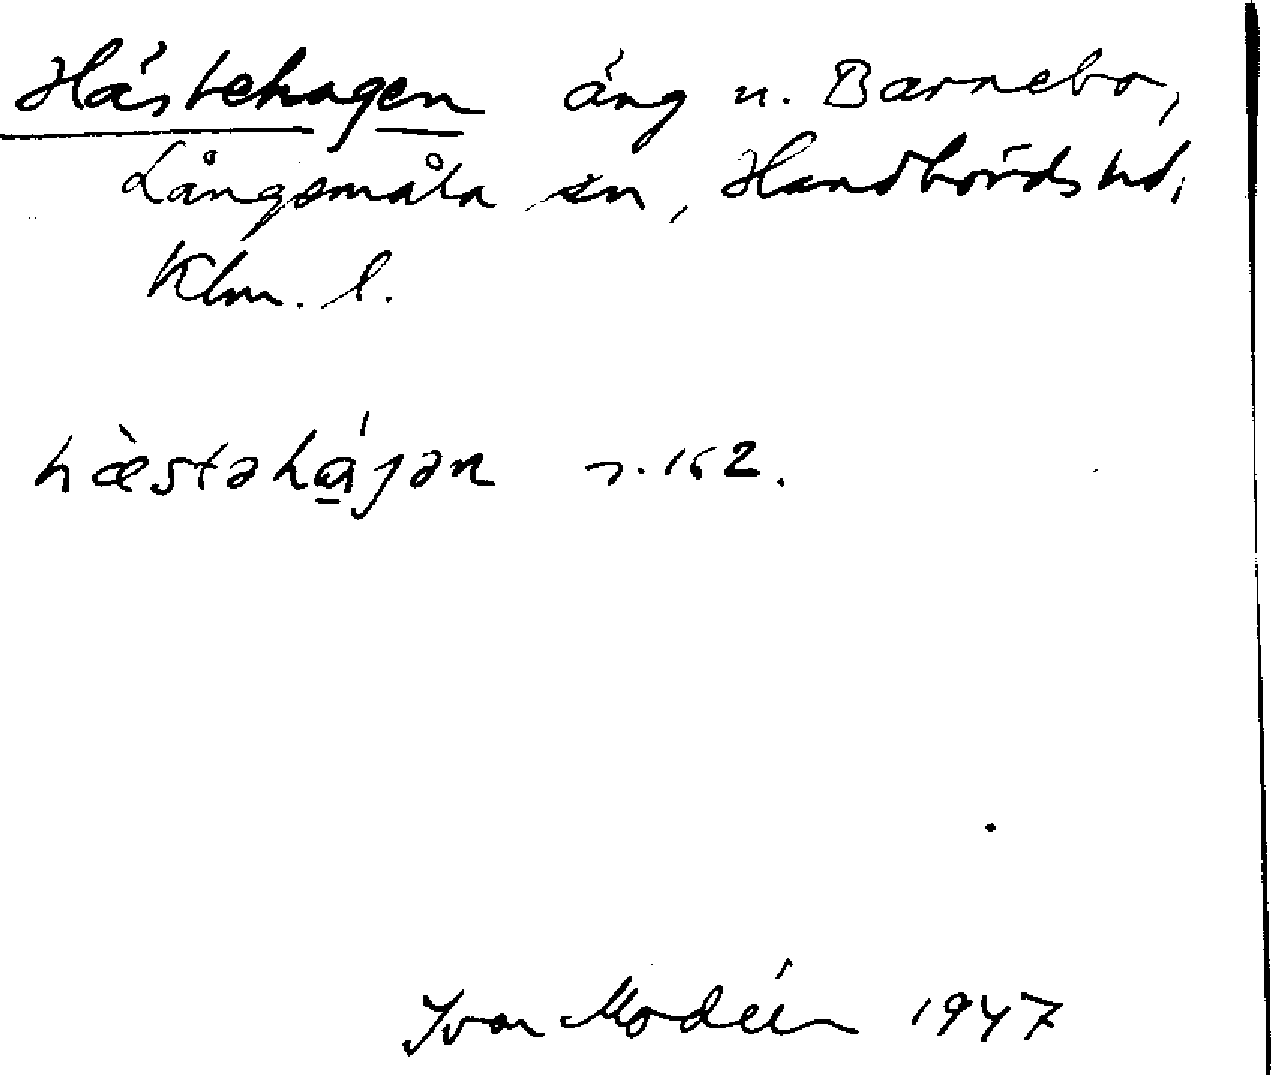 Hästehagen äng u. Barnebo,
Långemåla sn, Handbörds hd,
Klm. l.
hæ̀stəhá̱jən n. 162.
Ivar Modéer 1947